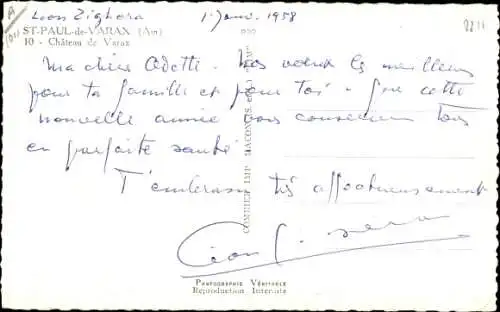 Leon Zighera 1 Janv. 1958
ST-PAUL-de-VARAX (Ain)
10 - Château de Varax
Ma chère Odette - Nos voeux les meilleurs
pour ta famille et pour toi - Que cette
nouvelle année vous conserve tous
en parfaite santé
T'embrasse très affectueusement
COMBIER IMP. MACON
PHOTOGRAPHIE VÉRITABLE
Reproduction Interdite